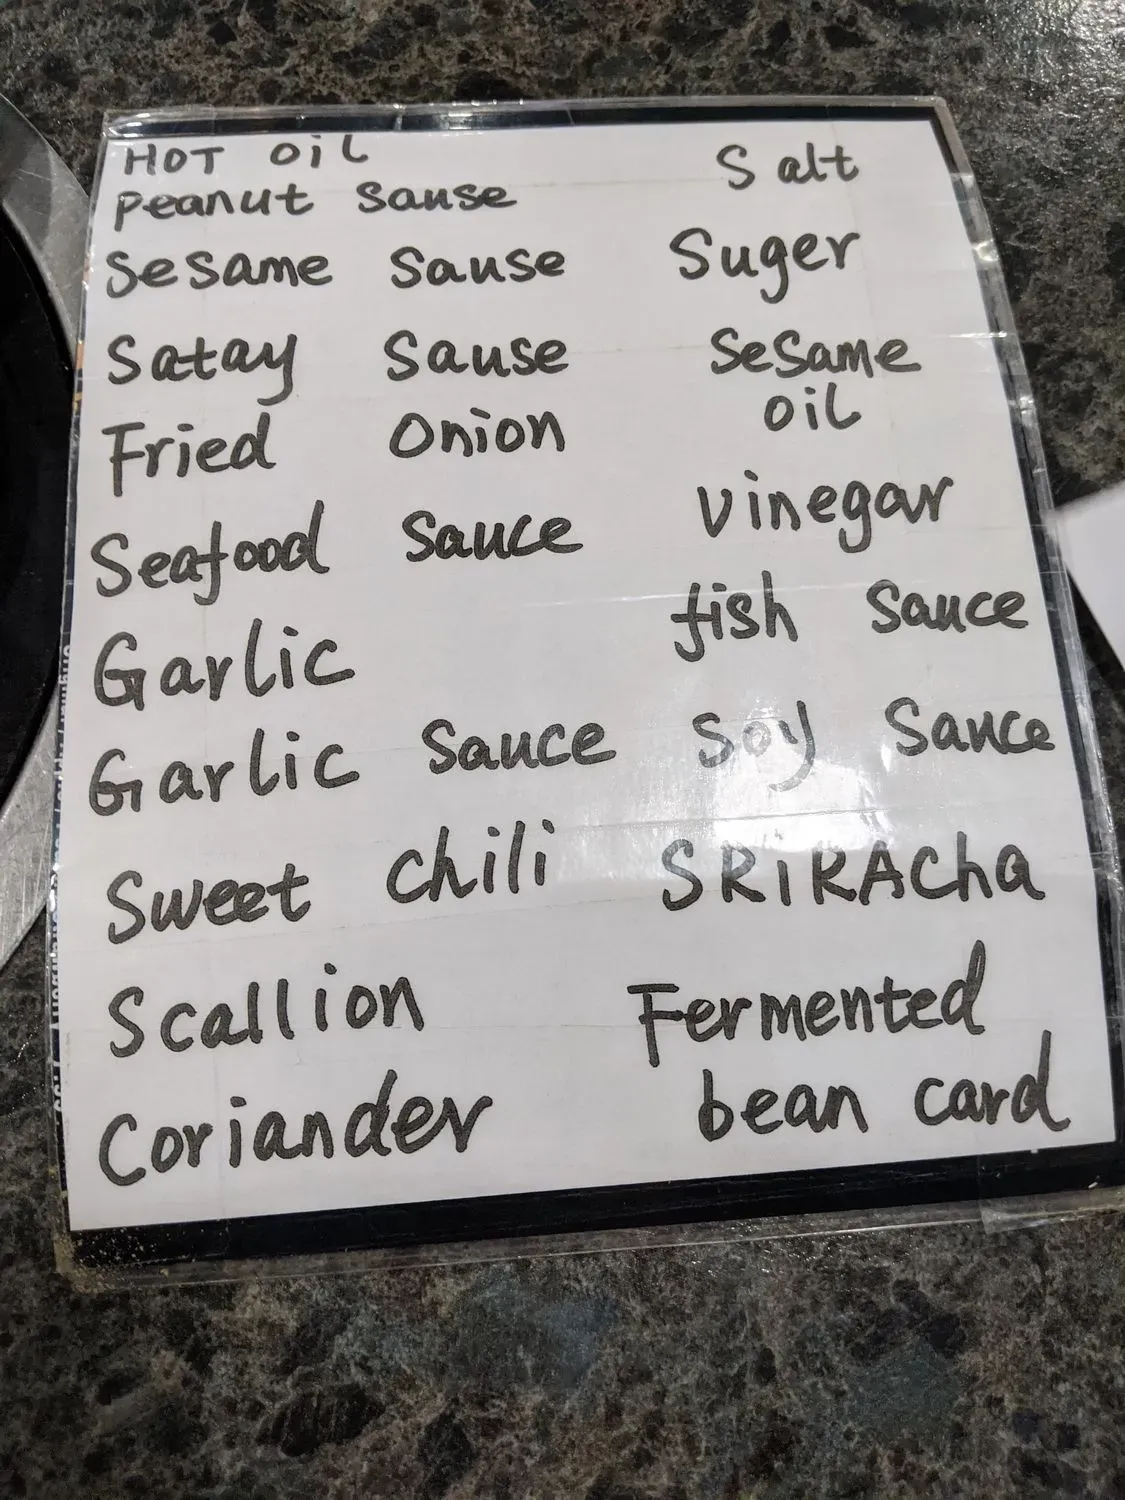 HOT OiL
Peanut Sause
Sesame Sause
Satay Sause
Fried Onion
Seafood Sauce
Garlic
Garlic Sauce
Sweet Chili
Scallion
Coriander
Salt
Suger
Sesame
oil
Vinegar
fish Sauce
Soy Sauce
SRiRACha
Fermented
bean card